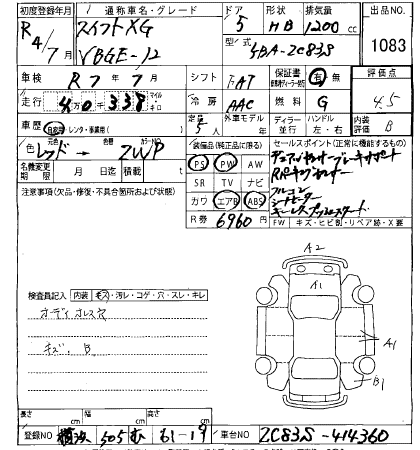 初度登録年月 通称車名・グレード ドア 形状 排気量 出品NO.
R4/7 スイフト XG 5 HB 1200 cc 1083
型/式 5BA-ZC83S
車検 R7年7月 シフト FAT 保証書 有 無 評価点
走行 4万0千338 マイル キロ 冷房 AAC 燃料 G 4.5
車歴 自家用 レンタ・事業用( ) 定員 5人 外車モデル 年 ディーラー 並行 ハンドル 左・右 内装評価 B
色 元色 レッド → 色替 カラーNO ZWP 装備品(純正品に限る) セールスポイント(正常に機能するもの)
名義変更期限 月 日迄 積載量 t PS PW AW
SR TV ナビ
カワ エアB ABS
デュアルセンサーブレーキサポート
フルコン
シートヒーター
キーレスプッシュスタート
注意事項(欠品・修復・不具合箇所および状態)
R券 6960 円 FW キズ・ヒビ割・リペア跡・X要
検査員記入 内装 キズ・汚レ・コゲ・穴・スレ・キレ
オーディオレス穴
キズ、B
A2
A1
A1
B1
長さ cm 幅 cm 高さ cm
登録NO 横浜 505 む 61-19 車台NO ZC83S-414360